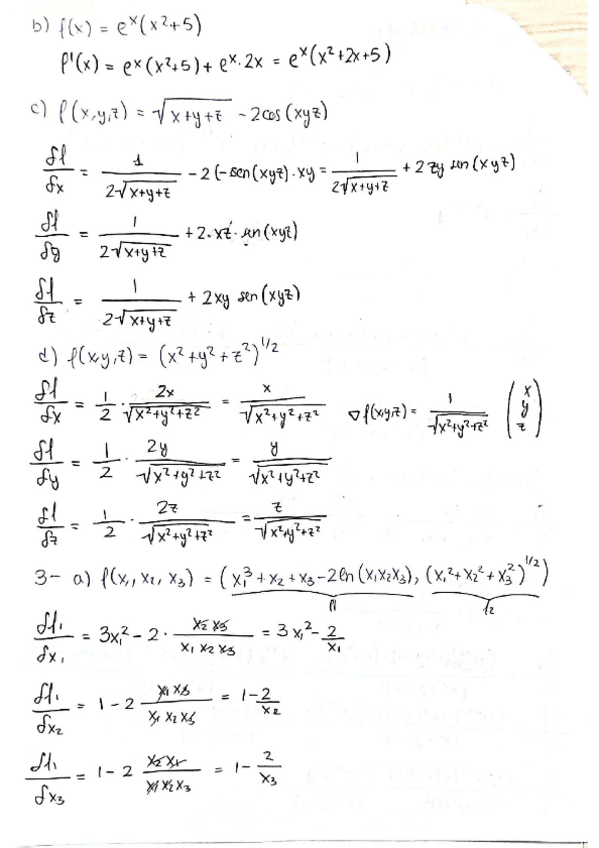 b) f(x) = e^x (x²+5)
f'(x) = e^x (x²+5) + e^x · 2x = e^x (x²+2x+5)
c) f(x,y,z) = √(x+y+z) - 2cos(xyz)
δf/δx = 1/(2√(x+y+z)) - 2(-sen(xyz)·xy = 1/(2√(x+y+z)) + 2zy sen(xyz)
δf/δy = 1/(2√(x+y+z)) + 2·xz·sen(xyz)
δf/δz = 1/(2√(x+y+z)) + 2xy sen(xyz)
d) f(x,y,z) = (x²+y²+z²)^1/2
δf/δx = 1/2 · 2x/√(x²+y²+z²) = x/√(x²+y²+z²) ∇f(x,y,z) = 1/√(x²+y²+z²) (x y z)
δf/δy = 1/2 · 2y/√(x²+y²+z²) = y/√(x²+y²+z²)
δf/δz = 1/2 · 2z/√(x²+y²+z²) = z/√(x²+y²+z²)
3- a) f(x₁, x₂, x₃) = (x₁³+x₂+x₃-2ln(x₁x₂x₃), (x₁²+x₂²+x₃²)^1/2)
f₁ f₂
δf₁/δx₁ = 3x₁² - 2 · x₂x₃/x₁x₂x₃ = 3x₁² - 2/x₁
δf₁/δx₂ = 1-2 x₁x₃/x₁x₂x₃ = 1-2/x₂
δf₁/δx₃ = 1-2 x₂x₁/x₁x₂x₃ = 1- 2/x₃